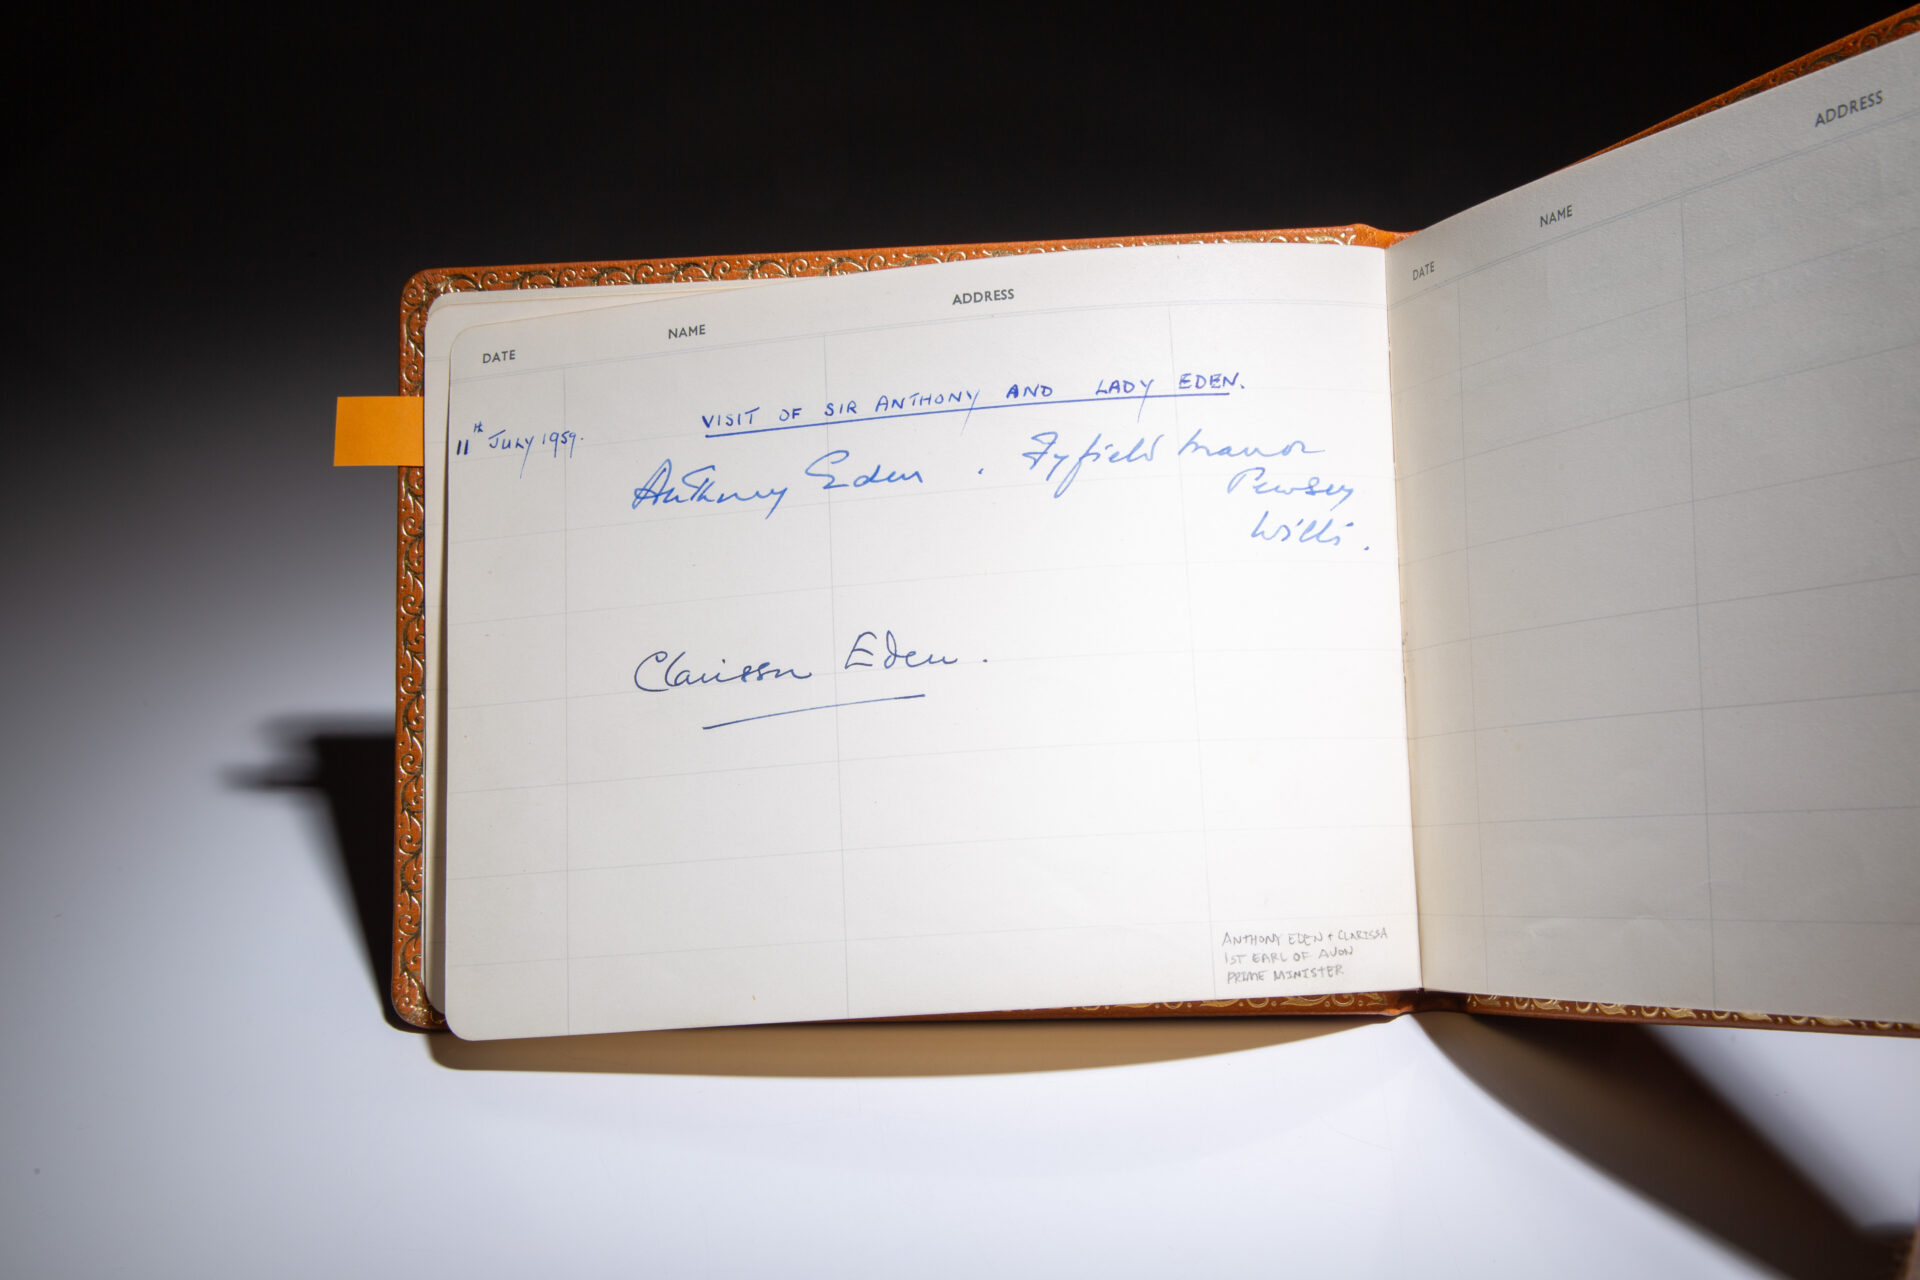 DATE NAME ADDRESS
VISIT OF SIR ANTHONY AND LADY EDEN.
11th JULY 1959.
Anthony Eden . Fyfield Manor
Pewsey
Wilts.
Clarissa Eden.
ANTHONY EDEN + CLARISSA
1ST EARL OF AVON
PRIME MINISTER
DATE NAME ADDRESS